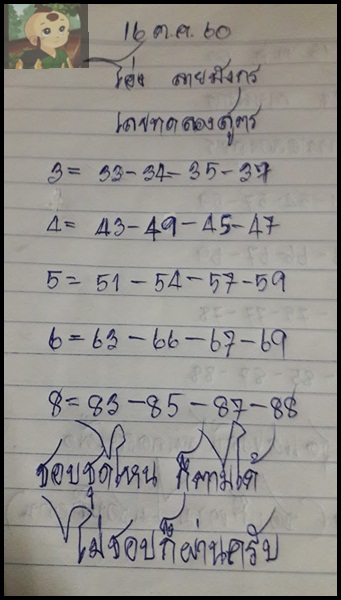 16 ต.ค. 60
โอ่ง ลายมังกร
เลขทดลองสูตร
3 = 33 - 34 - 35 - 37
4 = 43 - 49 - 45 - 47
5 = 51 - 54 - 57 - 59
6 = 63 - 66 - 67 - 69
8 = 83 - 85 - 87 - 88
ชอบชุดไหน ก็ตามได้
ไม่ชอบก็ผ่านครับ